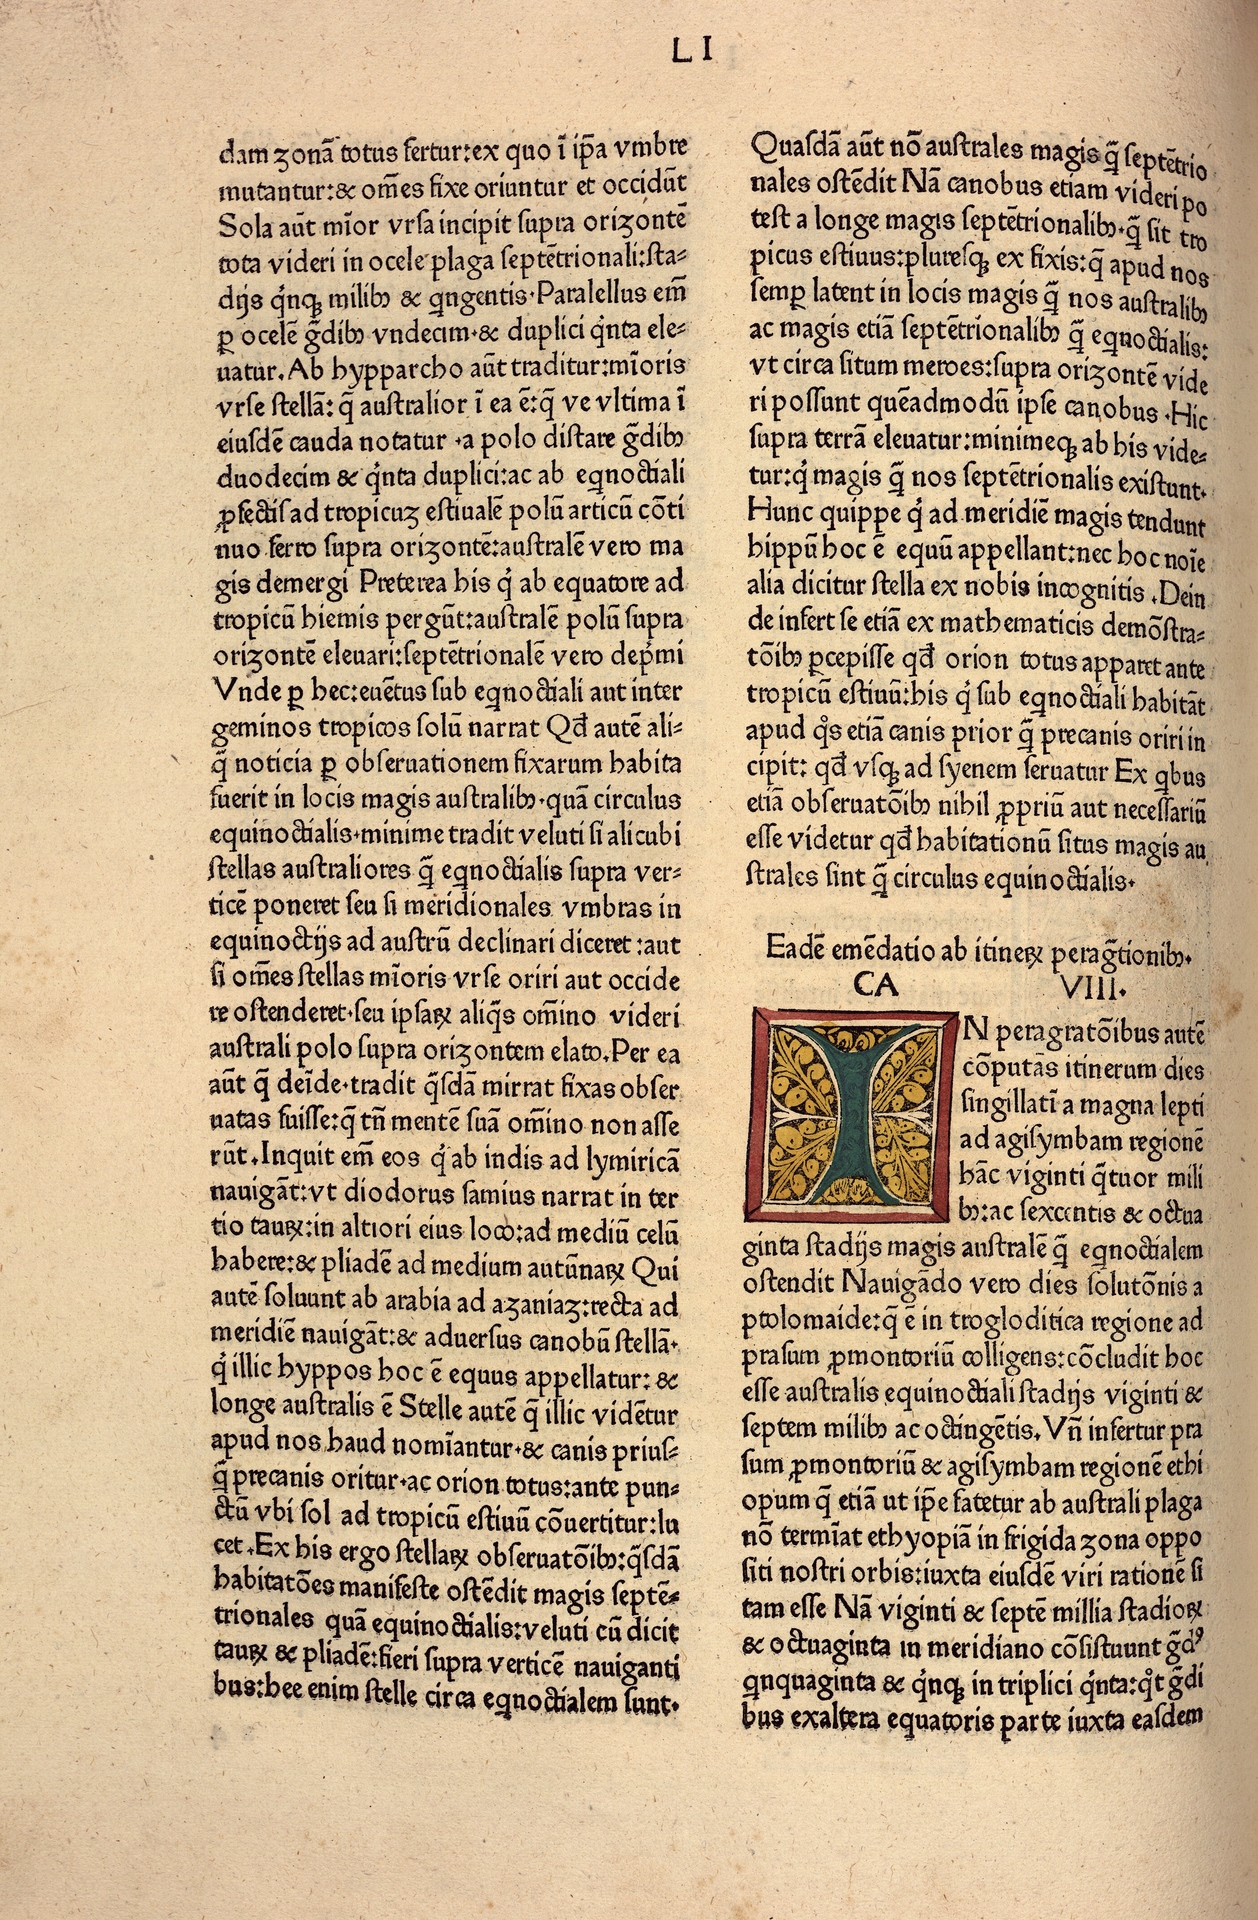 LI
dam zonā totus fertur:ex quo ī ip̄a vmbre
mutantur:& om̄es fixe oriuntur et occidūt
Sola aūt mīor vrsa incipit supra orizontē
tota videri in ocele plaga septētrionali:sta⸗
dijs q̇nqꝫ milibꝫ & qngentis·Paralellus em̄
ꝑ ocelē g̅dibꝫ vndecim·& duplici q̇nta ele⸗
uatur.Ab hypparcho aūt traditur:mīoris
vrse stellā: q̄ australior ī ea ē:q̄ ve vltima ī
eiusdē cauda notatur ·a polo distare g̅dibꝫ
duodecim & q̇nta duplici:ac ab eqnoctiali
ꝓfectis ad tropicuz estiualē polū articū cōti
nuo ferro supra orizontē:australē vero ma
gis demergi Preterea his q̇ ab equatore ad
tropicū hiemis pergūt:australē polū supra
orizontē eleuari:septētrionalē vero dep̍mi
Vnde ꝑ hec:euētus sub eqnoctiali aut inter
geminos tropicos solū narrat Qd̄ autē ali⸗
q̄ noticia ꝑ obseruationem fixarum habita
fuerit in locis magis australibꝫ·quā circulus
equinoctialis·minime tradit veluti si alicubi
stellas australiores q̄ eqnoctialis supra ver⸗
ticē poneret seu si meridionales vmbras in
equinoctijs ad austrū declinari diceret :aut
si om̄es stellas mīoris vrse oriri aut occide
re ostenderet·seu ipsaꝝ aliq̄s om̄ino videri
australi polo supra orizontem elato.Per ea
aūt q̄ deīde·tradit q̄sdā mirrat fixas obser
uatas fuisse:q̄ tn̄ mentē suā om̄ino non asse
rūt.Inquit em̄ eos q̇ ab indis ad lymiricā
nauigāt:vt diodorus samius narrat in ter
tio tauꝝ:in altiori eius loco:ad mediū celū
habere:& pliadē ad medium autūnaꝝ Qui
autē soluunt ab arabia ad azaniaz:recta ad
meridiē nauigāt:& aduersus canobū stellā·
q̇ illic hyppos hoc ē equus appellatur: &
longe australis ē Stelle autē q̄ illic vidētur
apud nos haud nomīantur·& canis prius⸗
q̄ precanis oritur·ac orion totus:ante pun⸗
ctū vbi sol ad tropicū estiuū cōuertitur:lu
cet.Ex his ergo stellaꝝ obseruatōibꝫ:q̄sdā
habitatōes manifeste ostēdit magis septē⸗
trionales quā equinoctialis:veluti cū dicit
tauꝝ & pliadē:fieri supra verticē nauiganti
bus:hee enim stelle circa eqnoctialem sunt·
Quasdā aūt nō australes magis q̄ septētrio
nales ostēdit Nā canobus etiam videri po
test a longe magis septētrionalibꝫ·q̄ sit tro
picus estiuus:pluresqꝫ ex fixis:q̄ apud nos
semꝑ latent in locis magis q̄ nos australibꝫ
ac magis etiā septētrionalibꝫ q̄ eqnoctialis:
vt circa situm meroes:supra orizontē vide
ri possunt quēadmodū ipse canobus ·Hic
supra terrā eleuatur:minimeqꝫ ab his vide⸗
tur:q̇ magis q̄ nos septētrionalis existunt·
Hunc quippe q̇ ad meridiē magis tendunt
hippū hoc ē equū appellant:nec hoc noīe
alia dicitur stella ex nobis incognitis .Dein
de infert se etiā ex mathematicis demōstra⸗
tōibꝫ ꝑcepisse qd̄ orion totus apparet ante
tropicū estiuū:his q̇ sub eqnoctiali habitāt
apud q̊s etiā canis prior q̄ precanis oriri in
cipit: qd̄ vsqꝫ ad syenem seruatur Ex qbus
etiā obseruatōibꝫ nihil ꝓpriū aut necessariū
esse videtur qd̄ habitationū situs magis au
strales sint q̄ circulus equinoctialis·
Eadē emēdatio ab itineꝝ perag̅tionibꝫ·
CA VIII·
IN peragratōibus autē
cōputās itinerum dies
singillatī a magna lepti
ad agisymbam regionē
hāc viginti q̄tuor mili
bꝫ:ac sexcentis & octua
ginta stadijs magis australē q̄ eqnoctialem
ostendit Nauigādo vero dies solutōnis a
ptolomaide:q̄ ē in trogloditica regione ad
prasum ꝓmontoriū colligens:cōcludit hoc
esse australis equinoctiali stadijs viginti &
septem milibꝫ ac octingētis. Vn̄ infertur pra
sum ꝓmontoriū & agisymbam regionē ethi
opum q̄ etiā ut ip̄e fatetur ab australi plaga
nō termīat ethyopiā in frigida zona oppo
siti nostri orbis:iuxta eiusdē viri rationē si
tam esse Nā viginti & septē millia stadioꝝ
& octuaginta in meridiano cōsistuunt g̅dꝰ
qnquaginta & q̇nqꝫ in triplici q̇nta:q̊t g̅di
bus ex altera equatoris parte iuxta easdem